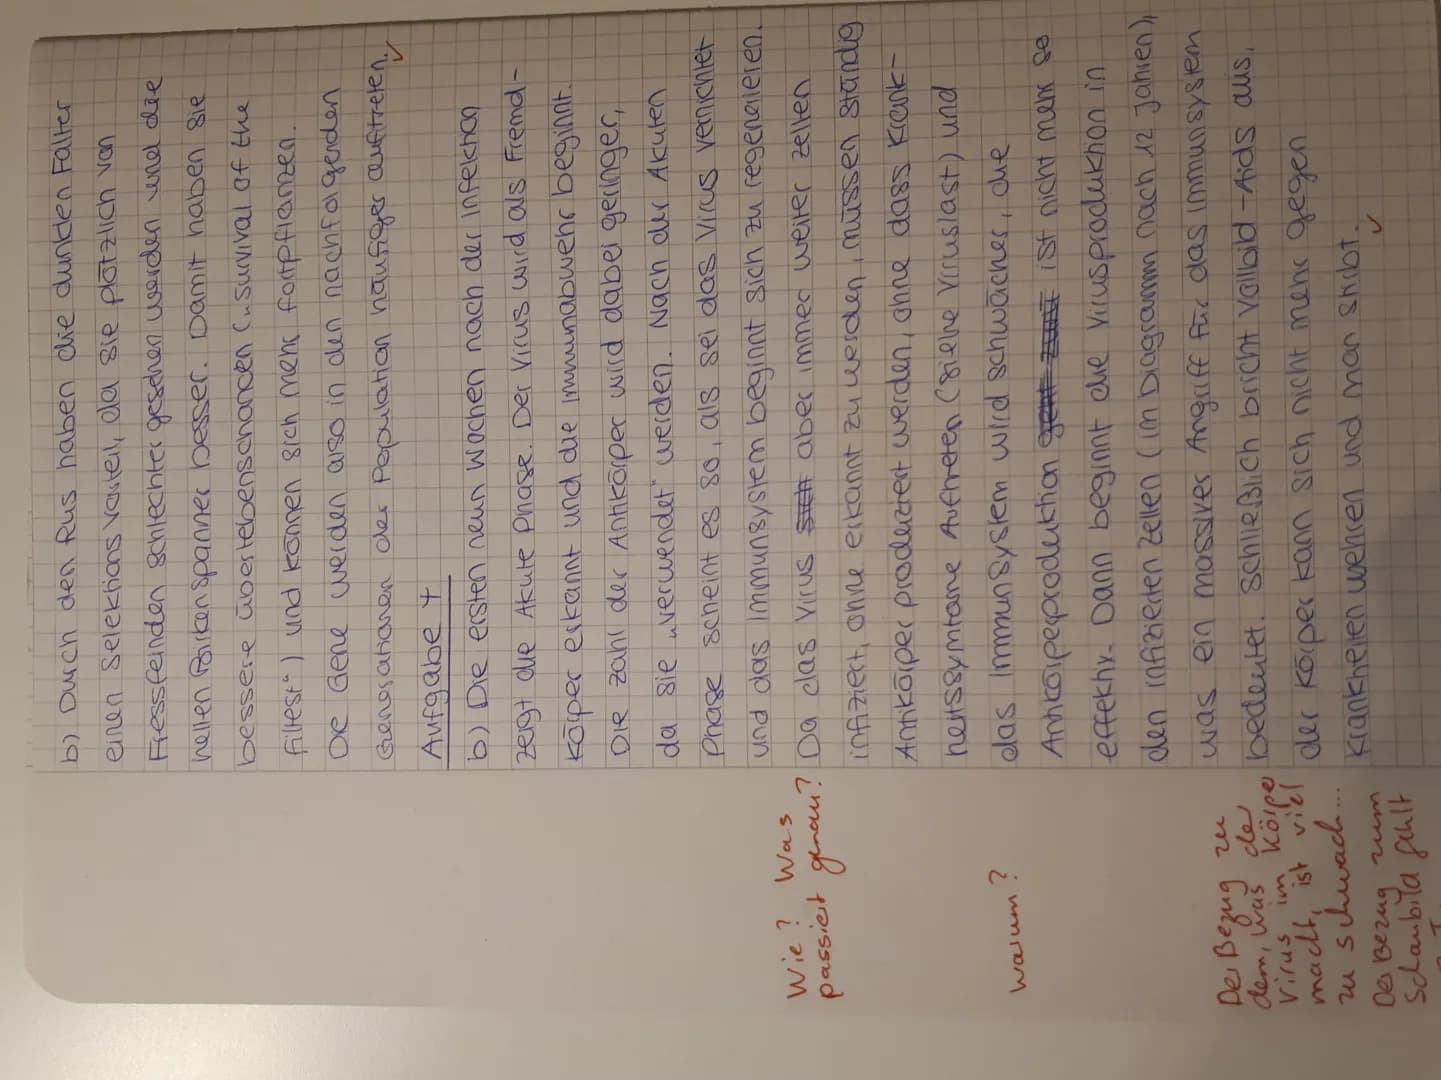 b) Durch den Rus haben die dunklen Falter
einen Selektionsvorteil, da sie plötzlich von
Fressfeinden schlechter gesehen werden und die
hellen Birkenspanner besser. Damit haben sie
bessere überlebenschancen („survival of the
fittest“) und können sich mehr fortpflanzen.
Die Gene werden also in den nachfolgenden
Generationen der Population häufiger auftreten.
Aufgabe 4
b) Die ersten neun Wochen nach der Infektion
zeigt die Akute Phase. Der Virus wird als Fremd-
körper erkannt und die Immunabwehr beginnt.
Die Zahl der Antikörper wird dabei geringer,
da sie „verwendet“ werden. Nach der Akuten
Phase scheint es so, als sei das Virus vernichtet
und das Immunsystem beginnt sich zu regenerieren.
Da das Virus aber immer weiter Zellen
infiziert, ohne erkannt zu werden, müssen ständig
Antikörper produziert werden, ohne dass Krank-
heitssymtome Auftreten (siehe Viruslast) und
das Immunsystem wird schwächer, die
Antikörperproduktion ist nicht mehr so
effektiv. Dann beginnt die Virusproduktion in
den infizierten Zellen (im Diagramm nach 12 Jahren),
was ein massiver Angriff für das Immunsystem
bedeutet. Schließlich bricht Vollbid-Aids aus,
der Körper kann sich nicht mehr gegen
Krankheiten wehren und man stribt.
Wie? Was
passiert genau?
Warum?
Der Bezug zu
dem, was der
Virus im Körper
macht, ist viel
zu schwach...
Der Bezug zum
Schaubild fehlt